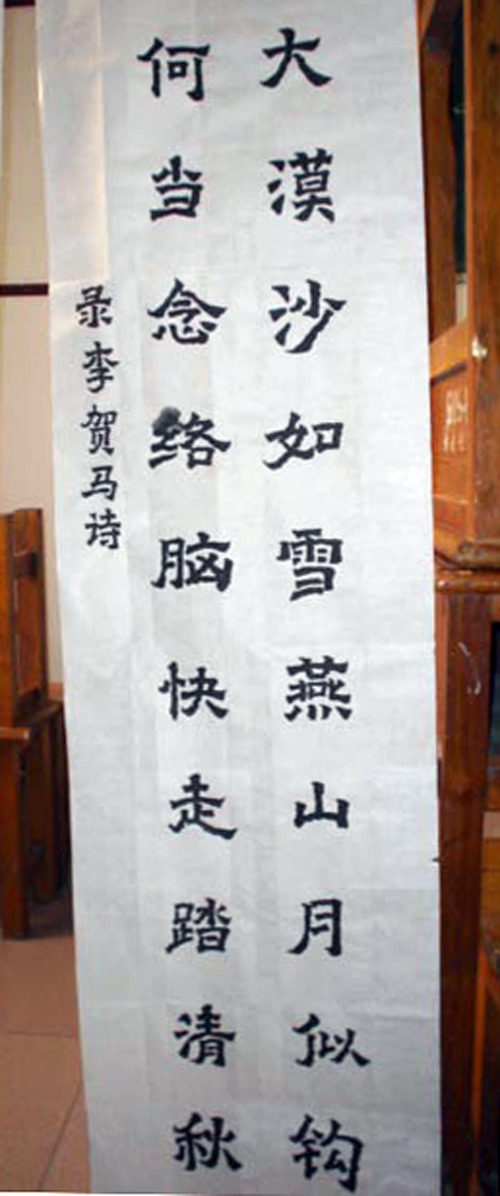 大漠沙如雪燕山月似钩
何当念络脑快走踏清秋
录李贺马诗